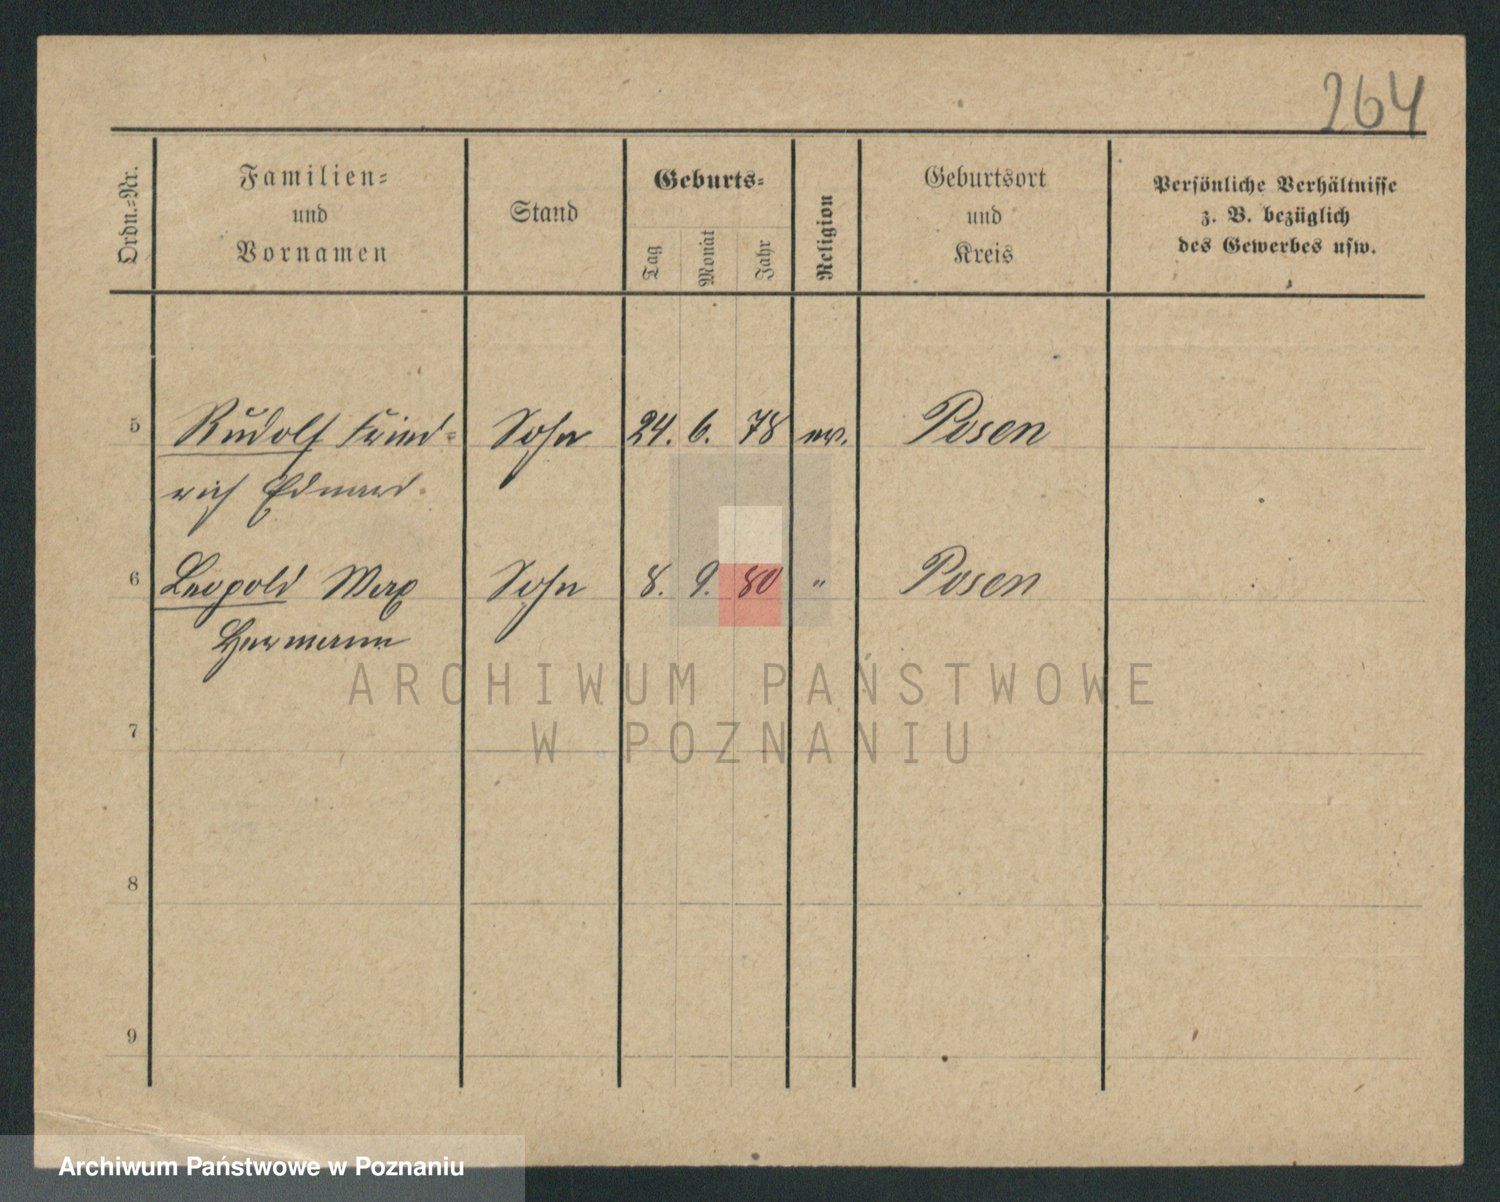 264
Ordn.=Nr.
Familien=
und
Vornamen
Stand
Geburts=
Tag
Monat
Jahr
Religion
Geburtsort
und
Kreis
Persönliche Verhältnisse
z. B. bezüglich
des Gewerbes usw.
5 Rudolf Fried= Sohn 24. 6. 78 ev. Posen
rich Eduard.
6 Leopold Max Sohn 8. 9. 80 " Posen
Hermann
ARCHIWUM PAŃSTWOWE
W POZNANIU
7
8
9
Archiwum Państwowe w Poznaniu